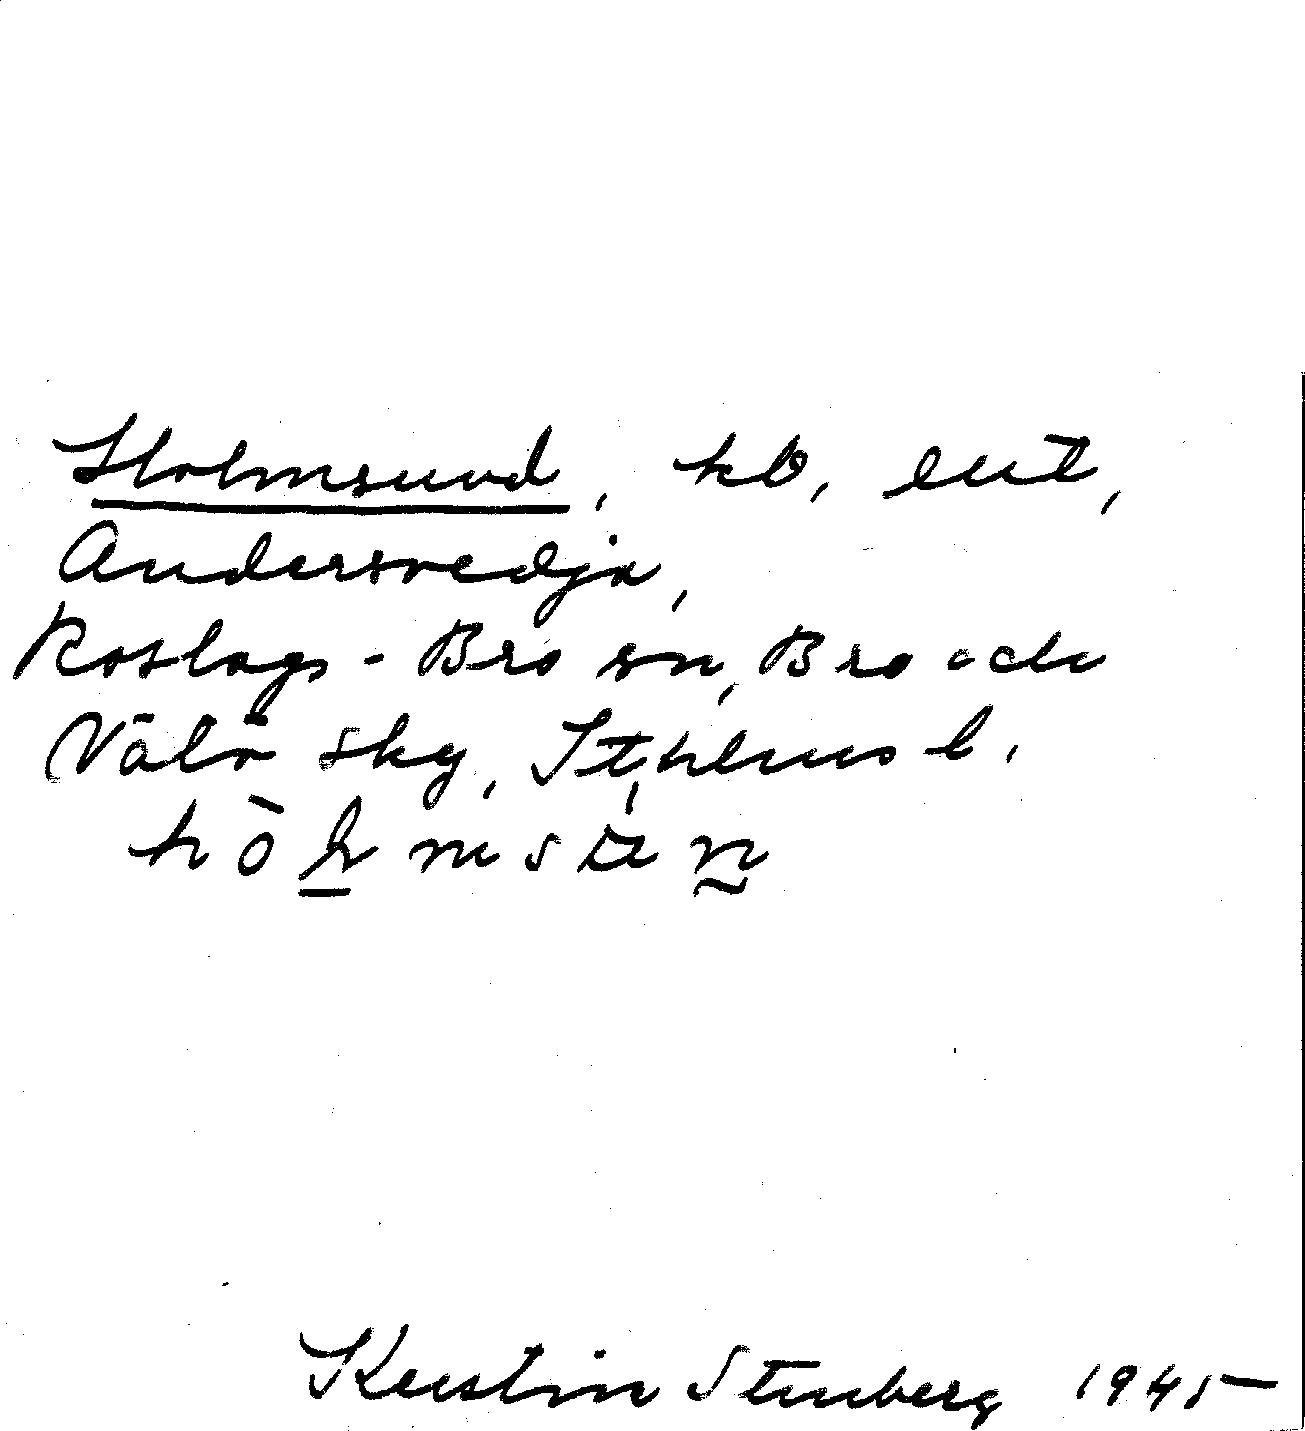 Holmsund, kb, ent,
Andersvedja,
Roslags-Bro sn, Bro och
Vätö sky, Sthlms l.
Kerstin Stenberg 1945